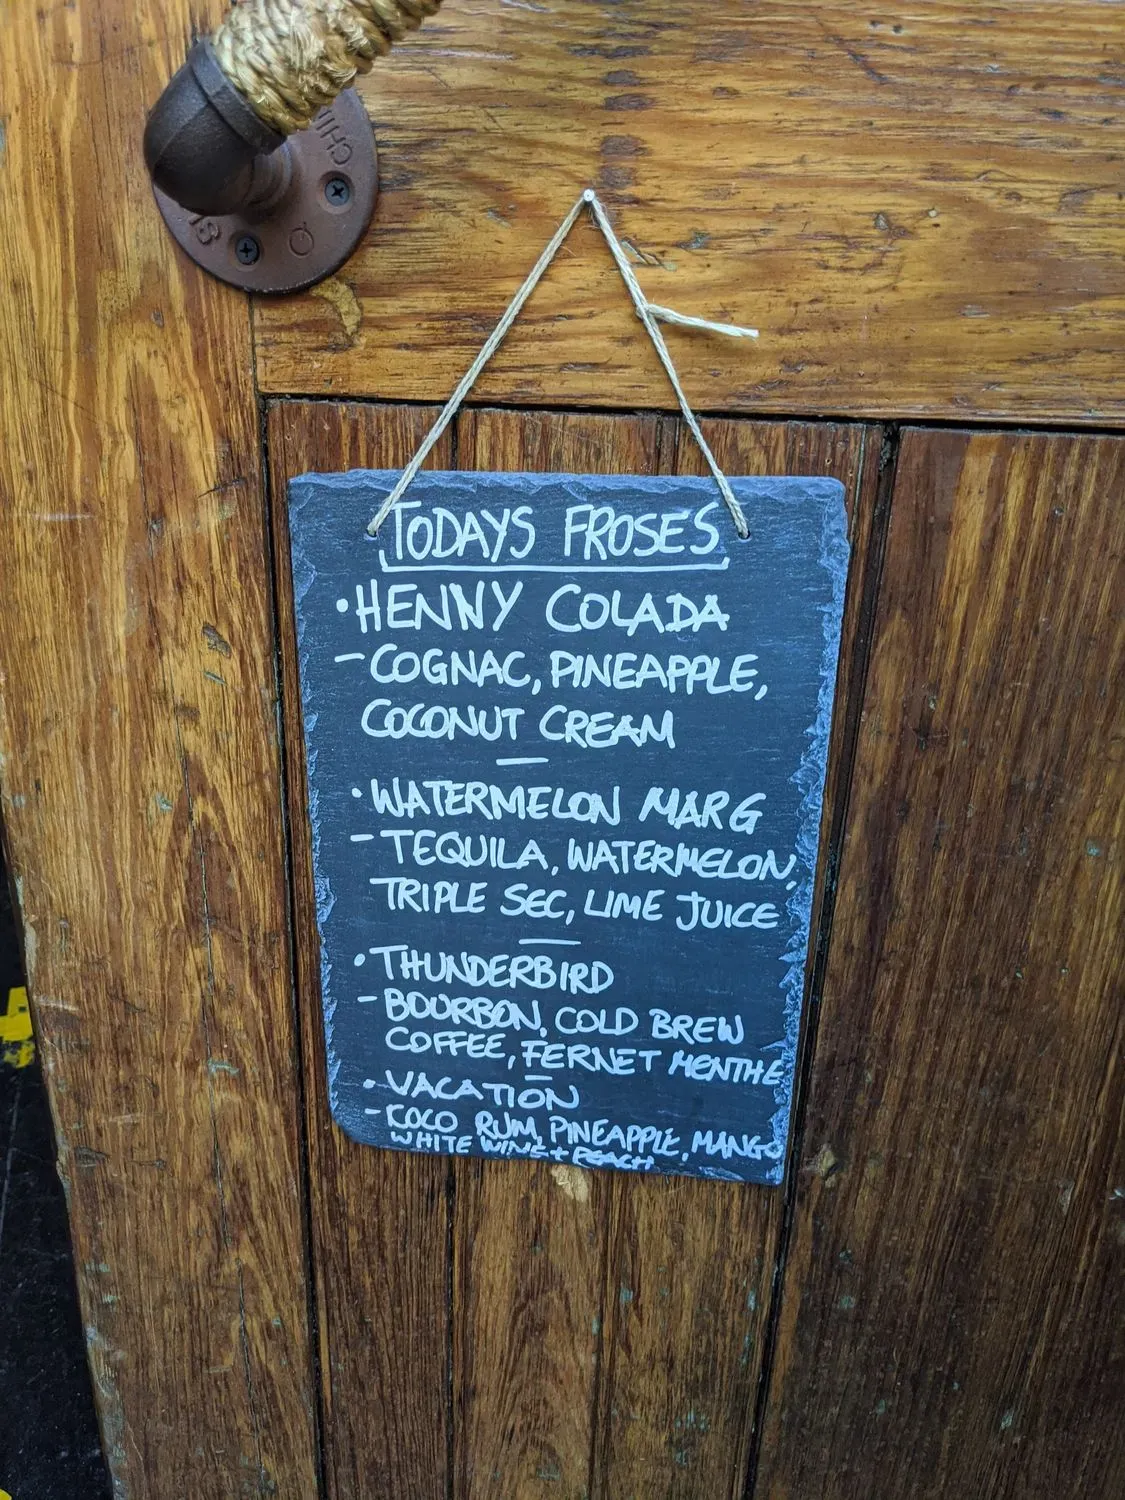 CHIN
Q
SI
TODAYS FROSES
• HENNY COLADA
- COGNAC, PINEAPPLE,
COCONUT CREAM
—
• WATERMELON MARG
- TEQUILA, WATERMELON,
TRIPLE SEC, LIME JUICE
—
• THUNDERBIRD
- BOURBON, COLD BREW
COFFEE, FERNET MENTHE
—
• VACATION
- COCO RUM, PINEAPPLE, MANGO
WHITE WINE + PEACH